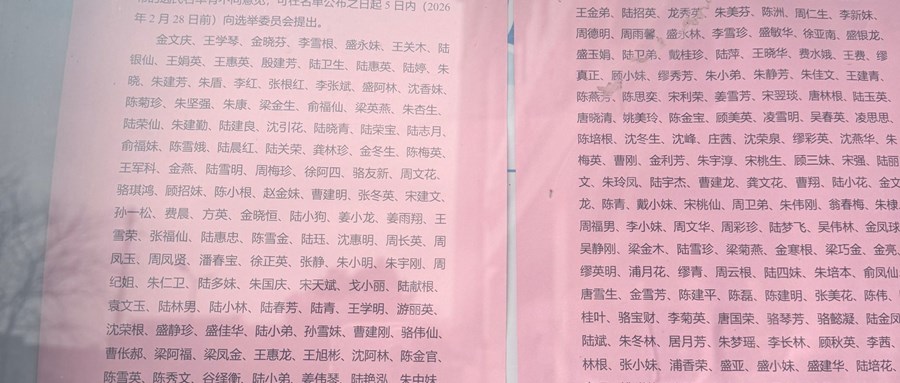 布的选民名单有不同意见，可在名单公布之日起5日内（2026
年2月28日前）向选举委员会提出。
金文庆、王学琴、金晓芬、李雪根、盛永妹、王关木、陆
银仙、王娟英、王惠英、殷建芳、陆卫生、陆惠英、陆婷、朱
晓、朱建芳、朱盾、李红、张根红、李张斌、盛阿林、沈香妹、
陈菊珍、朱坚强、朱康、梁金生、俞福仙、梁英燕、朱杏生、
陆荣仙、朱建勤、陆建良、沈引花、陆晓青、陆荣宝、陆志月、
俞福妹、陈雪娥、陆晨红、陆关荣、龚林珍、金冬生、陈梅英、
王军科、金燕、陆雪明、周梅珍、徐阿四、骆友新、周文花、
骆琪鸿、顾招妹、陈小根、赵金妹、曹建明、张冬英、宋建文、
孙一松、费晨、方英、金晓恒、陆小狗、姜小龙、姜雨翔、王
雪荣、张福仙、陆惠忠、陈雪金、陆珏、沈惠明、周长英、周
凤玉、周凤贤、潘春宝、徐正英、张静、朱小明、朱宇刚、周
纪姐、朱仁卫、陆多妹、朱国庆、宋天斌、戈小丽、陆献根、
袁文玉、陆林男、陆小林、陆春芳、陆青、王学明、游丽英、
沈荣根、盛静珍、盛佳华、陆小弟、孙雪妹、曹建刚、骆伟仙、
曹伥郝、梁阿福、梁凤金、王惠龙、王旭彬、沈阿林、陈金官、
陈雪英、陈秀文、谷绎衡、陆小弟、姜伟琴、陆艳泓、朱中妹
王金弟、陆招英、龙秀英、朱美芬、陈洲、周仁生、李新妹、
周德明、周雨馨、盛水林、李雪珍、盛敏华、徐亚南、盛银龙、
盛玉娟、陆卫弟、戴桂珍、陆萍、王晓华、费水娥、王费、缪
真正、顾小妹、缪秀芳、朱小弟、朱静芳、朱佳文、王建青、
陈燕芳、陈思奕、宋利荣、姜雪芳、宋翌琰、唐林根、陆玉英、
唐晓清、姚美玲、陈金宝、顾美英、凌雪明、吴春英、凌思思、
陈培根、沈冬生、沈峰、庄茜、沈荣泉、缪彩英、沈燕华、朱
梅英、曹刚、金利芳、朱宇淳、宋桃生、顾三妹、宋强、陆丽
文、朱玲凤、陆宇杰、曹建龙、龚文花、曹翔、陆小花、金文
龙、陈青、戴小妹、宋桃仙、周卫弟、朱伟刚、翁春梅、朱棣
周福男、李小妹、周文华、周彩珍、陆梦飞、吴伟林、金凤球
吴静刚、梁金木、陆雪珍、梁菊燕、金寒根、梁巧金、金亮、
缪英明、浦月花、缪青、周云根、陆四妹、朱培本、俞凤仙
唐雪生、金雪芳、陈建平、陈磊、陈建明、张美花、陈伟、
桂叶、骆宝财、李菊英、唐国荣、骆琴芳、骆懿凝、陆金凤
陆斌、朱冬林、居月芳、朱梦瑶、李长林、顾秋英、李茜、
林根、张小妹、浦香荣、盛亚、盛小妹、盛建华、陆培花、